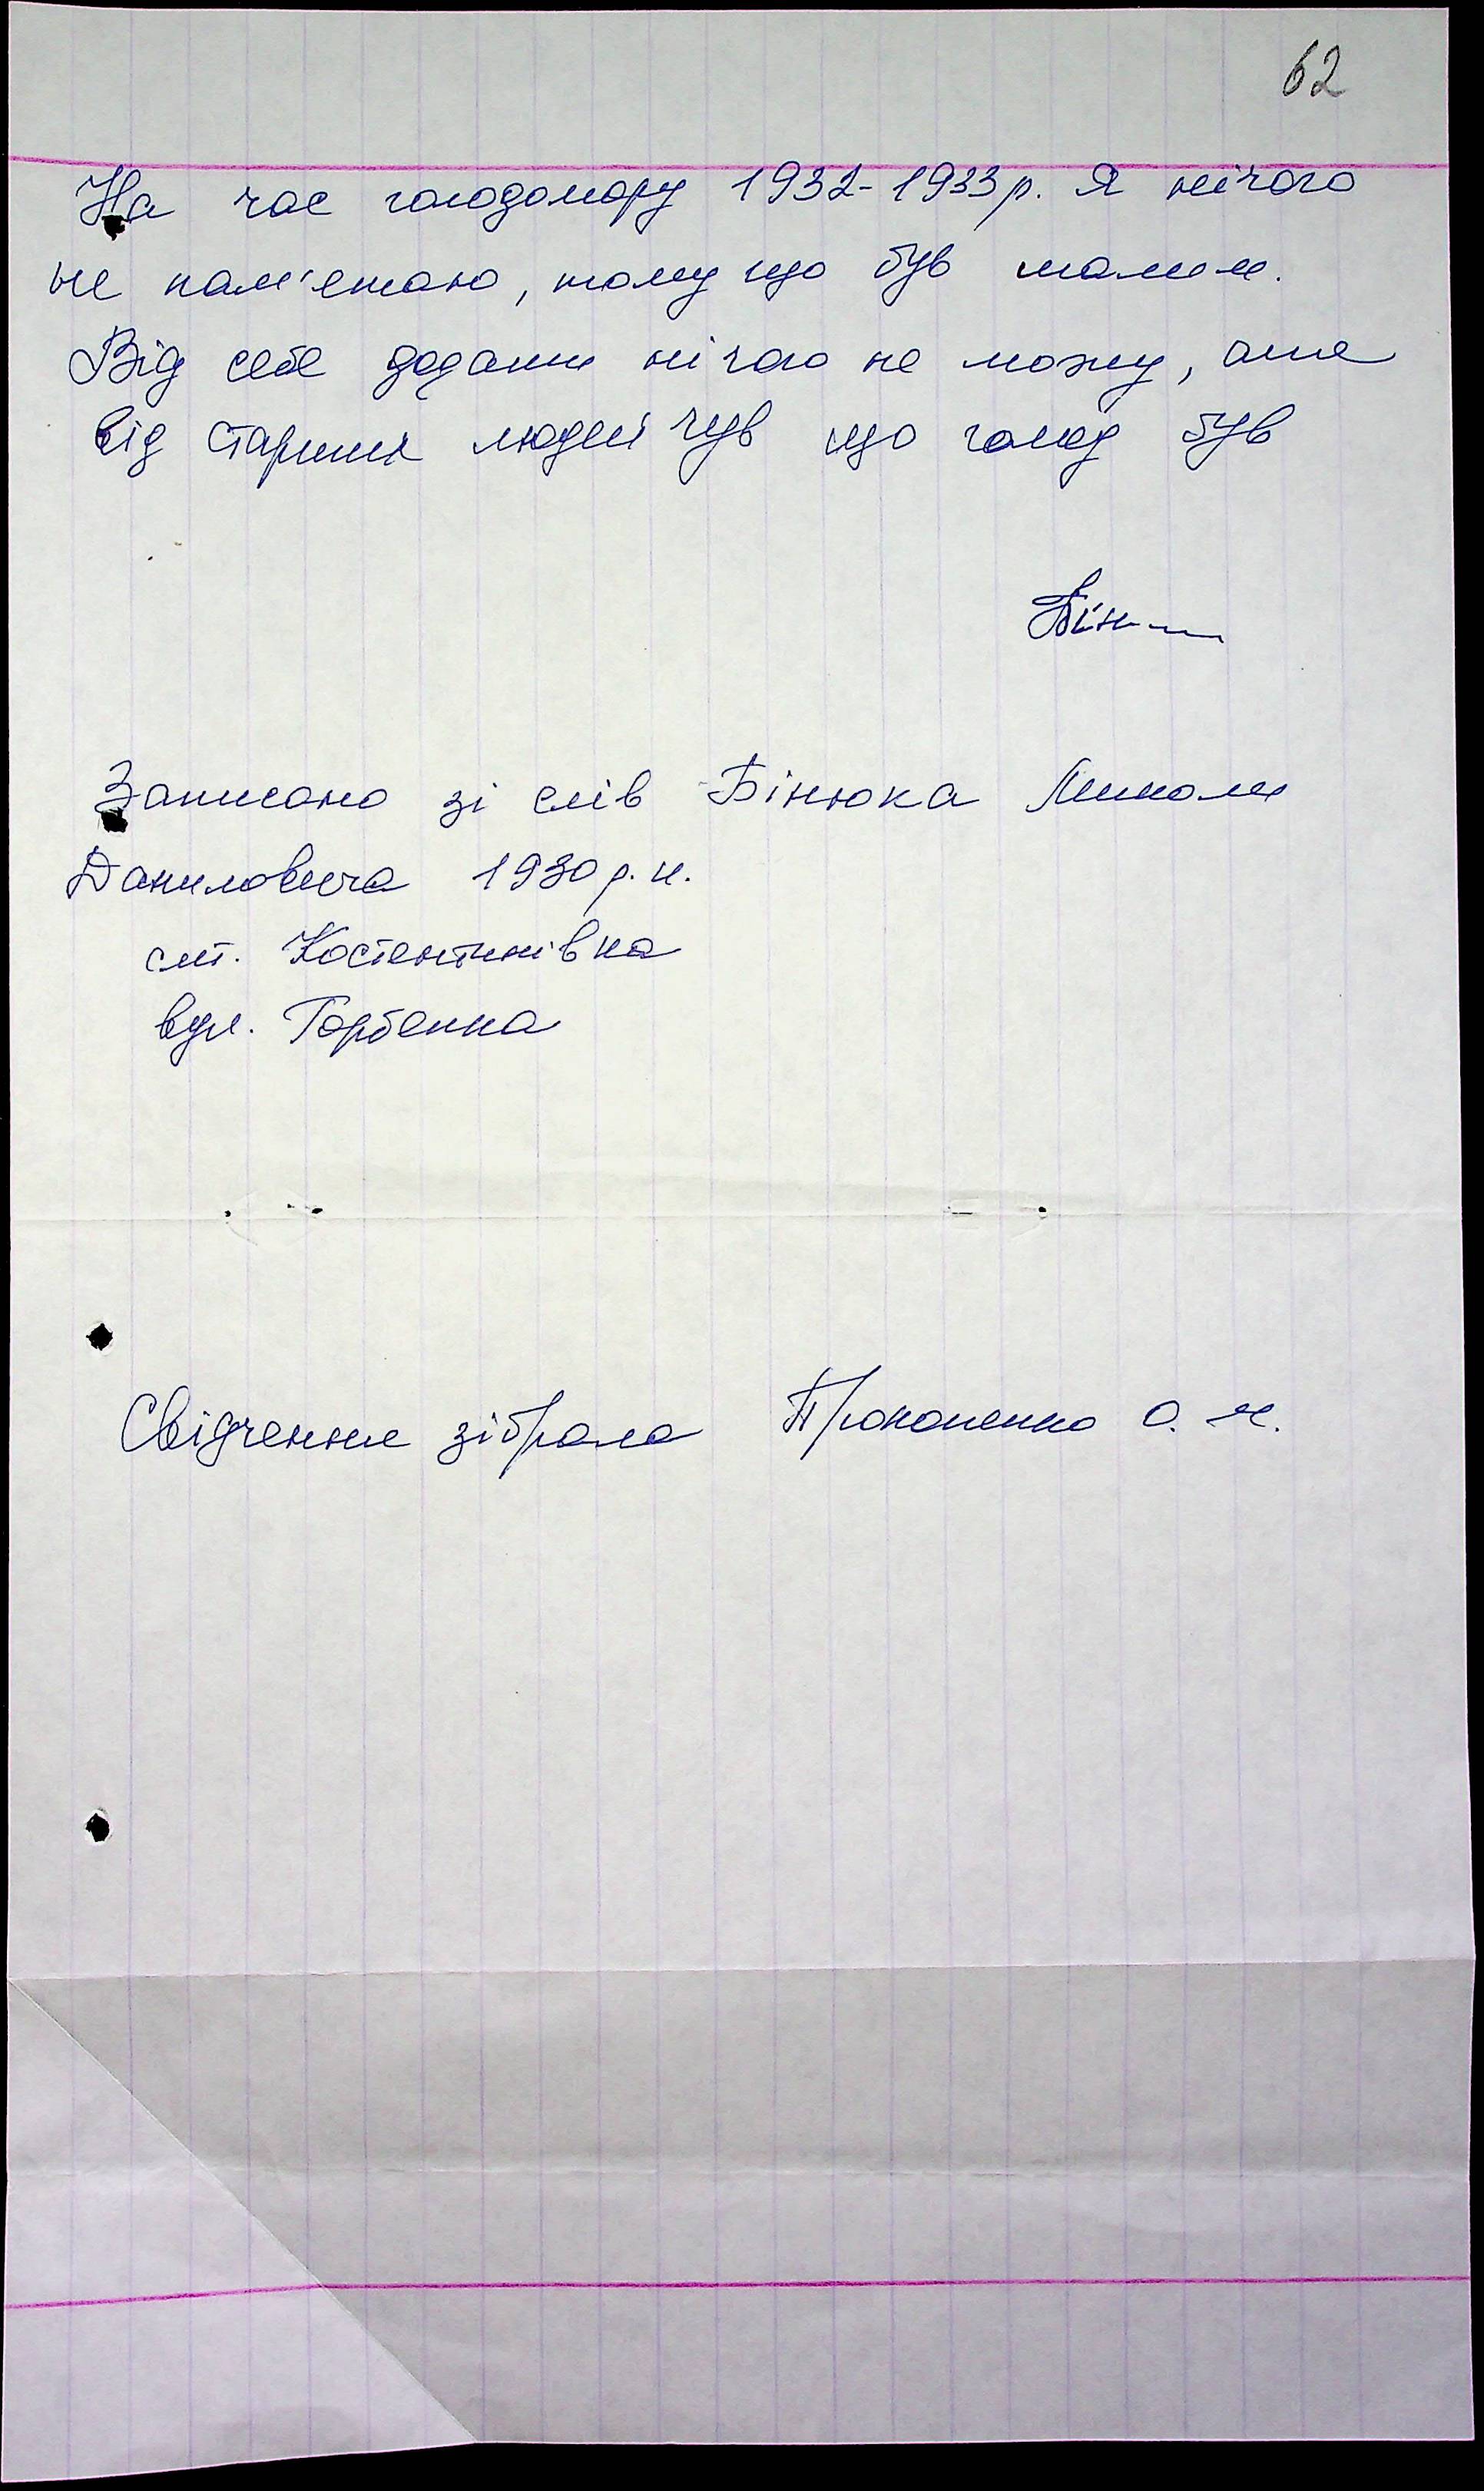 62
На час голодомору 1932-1933р. Я нічого
не пам'ятаю, тому що був малим.
Від себе додати нічого не можу, але
від старших людей чув що голод був
Бін
Записано зі слів Бінюка Миколи
Даниловича 1930 р.н.
смт. Костянтинівка
вул. Горбенка
Свідчення зібрала Прокопенко О.М.